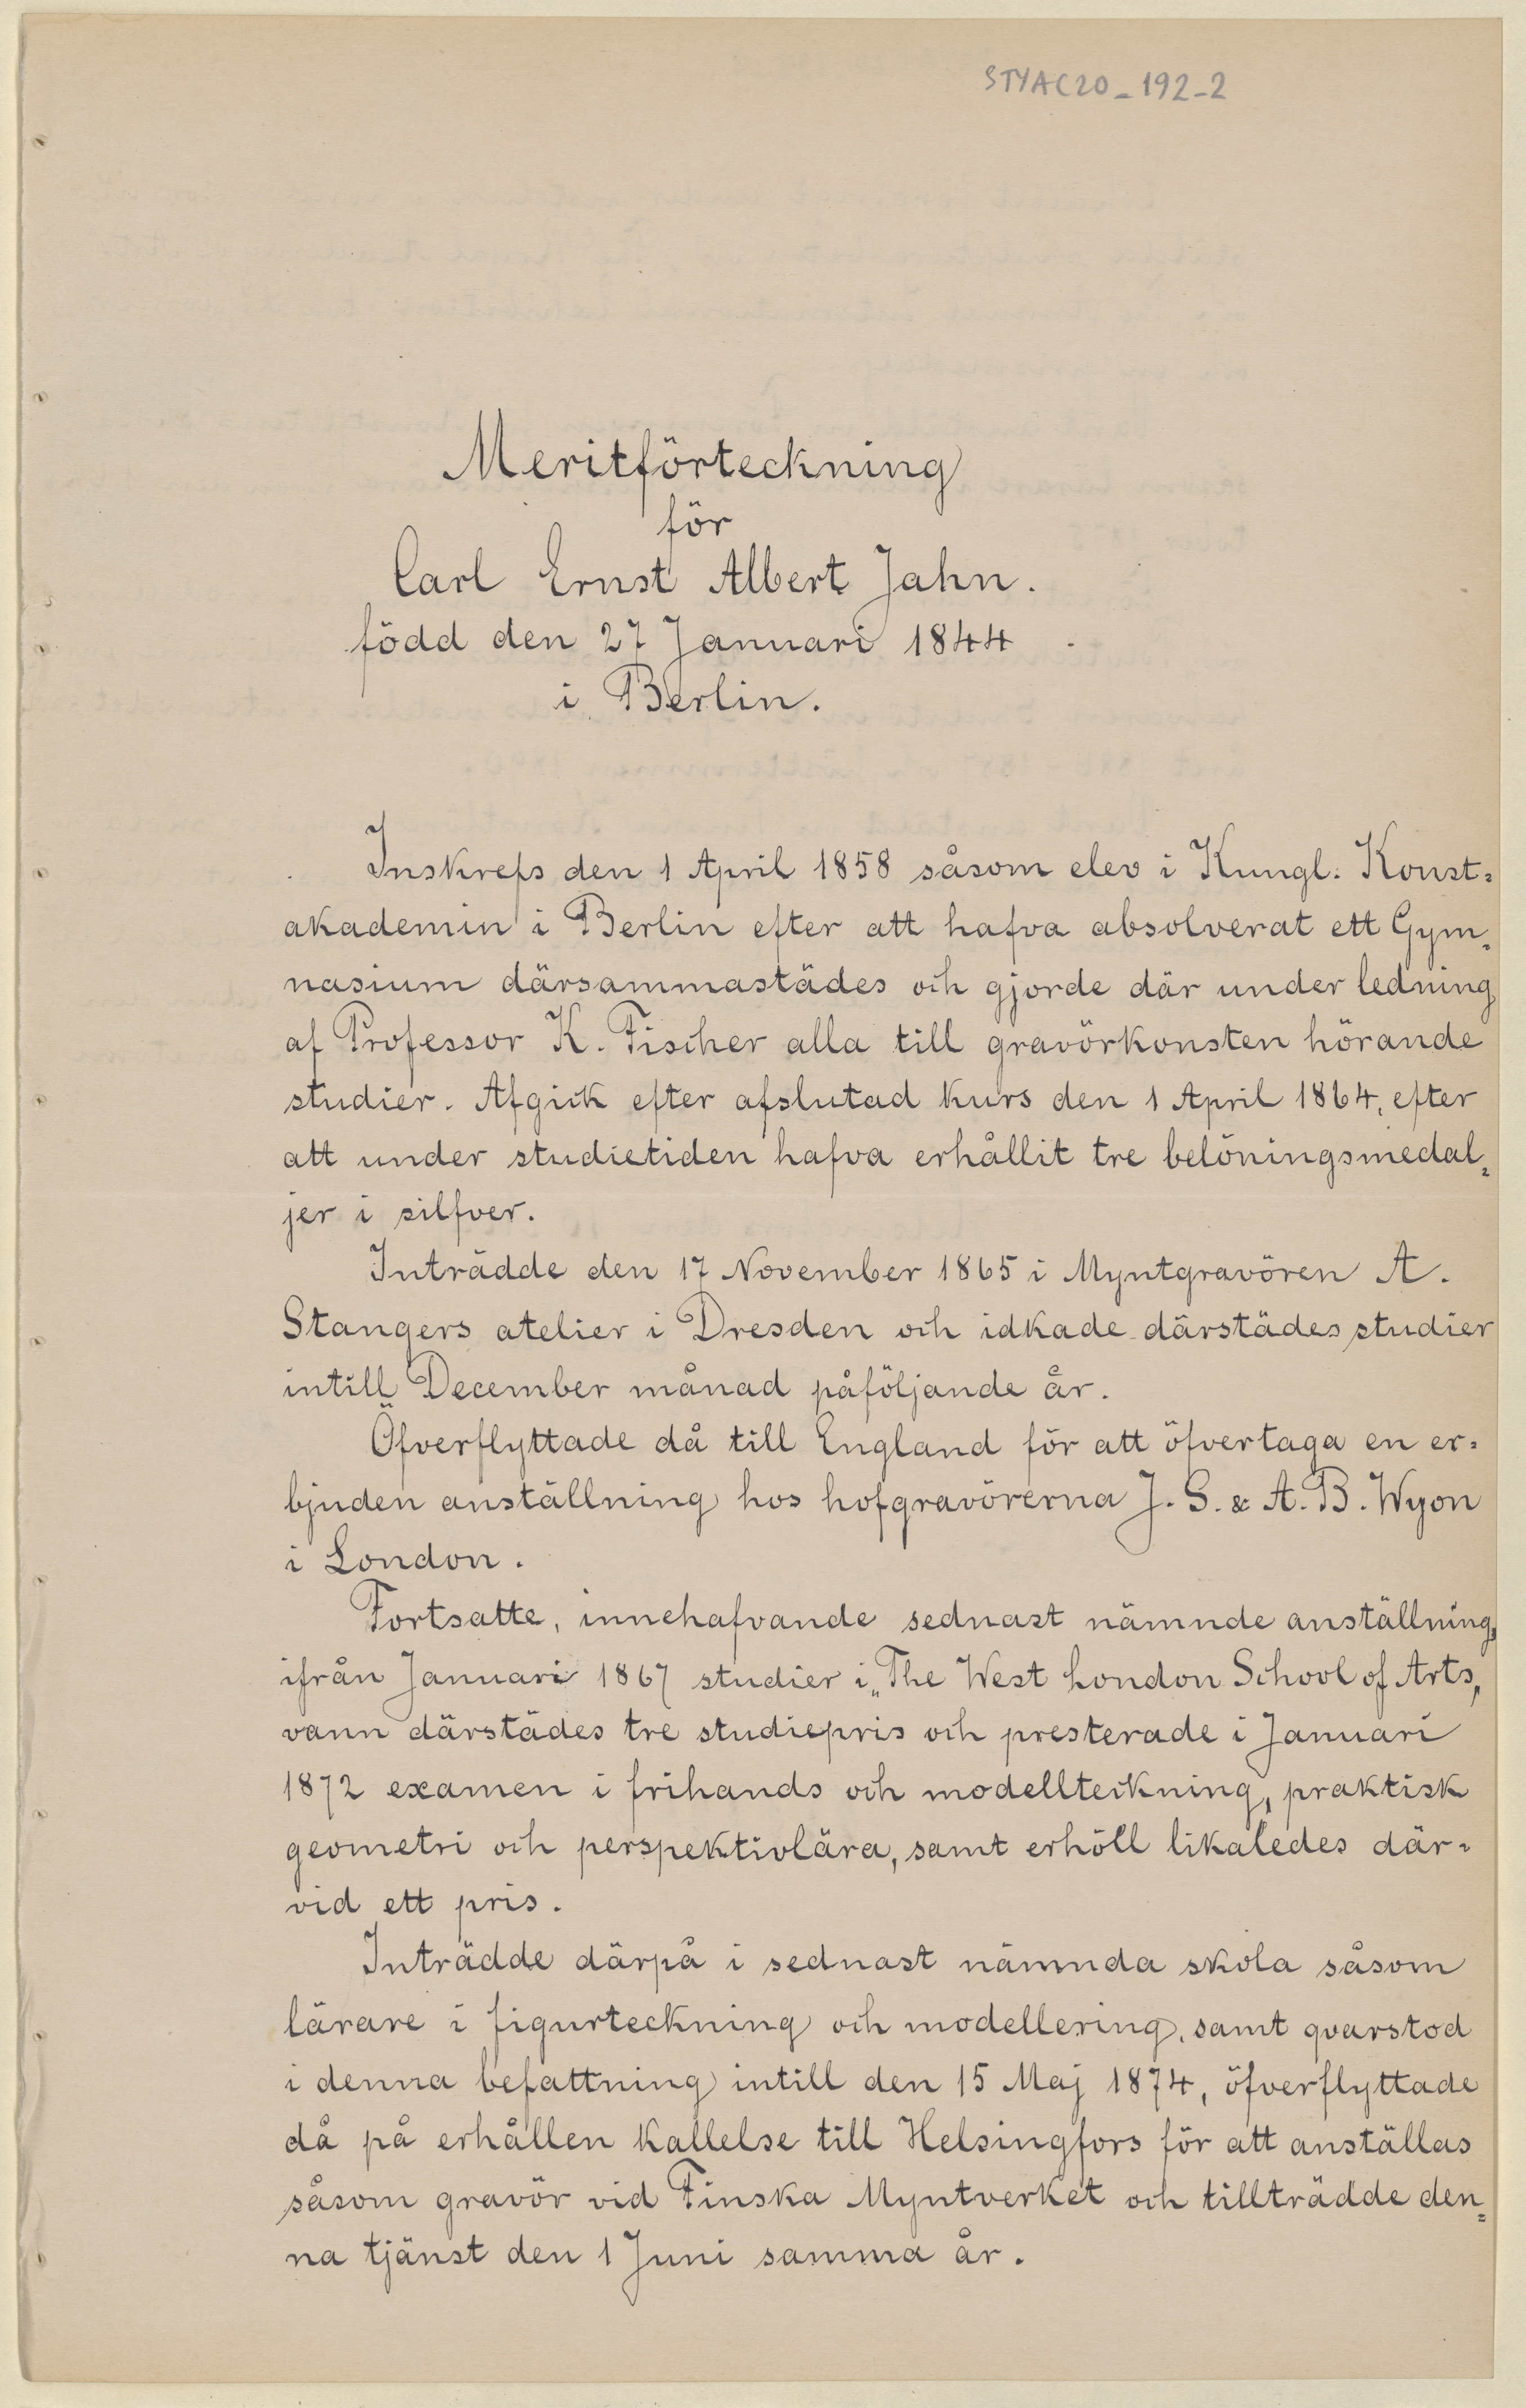 STYAC20_192_2
Meritförteckning
för
Carl Ernst Albert Jahn.
född den 27 Januari 1844
i Berlin.
Inskrefs den 1 April 1858 såsom elev i Kungl. Konst=
akademin i Berlin efter att hafva absolverat ett Gym=
nasium därsammastädes och gjorde där under ledning
af Professor K. Fischer alla till gravörkonsten hörande
studier. Afgick efter afslutad kurs den 1 April 1864, efter
att under studietiden hafva erhållit tre belöningsmedal=
jer i silfver.
Inträdde den 17 November 1865 i Myntgravören A.
Stangers atelier i Dresden och idkade därstädes studier
intill December månad påföljande år.
Öfverflyttade då till England för att öfvertaga en er=
bjuden anställning hos hofgravörerna J. S. & A. B. Wyon
i London.
Fortsatte, innehafvande sednast nämnde anställning,
ifrån Januari 1867 studier i „The West London School of Arts,
vann därstädes tre studiepris och presterade i Januari
1872 examen i frihands och modellteckning, praktisk
geometri och perspektivlära, samt erhöll likaledes där=
vid ett pris.
Inträdde därpå i sednast nämnda skola såsom
lärare i figurteckning och modellering, samt qvarstod
i denna befattning intill den 15 Maj 1874, öfverflyttade
då på erhållen kallelse till Helsingfors för att anställas
såsom gravör vid Finska Myntverket och tillträdde den=
na tjänst den 1 Juni samma år.